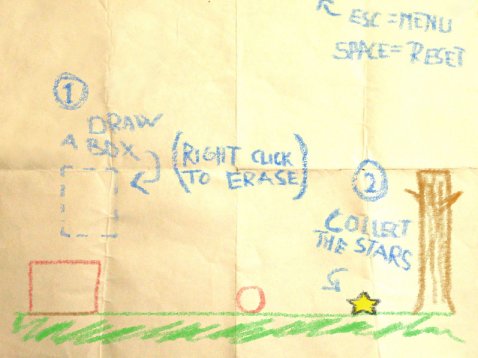 ESC=MENU
SPACE=RESET
1
DRAW
A BOX
(RIGHT CLICK
TO ERASE)
2
COLLECT
THE STARS